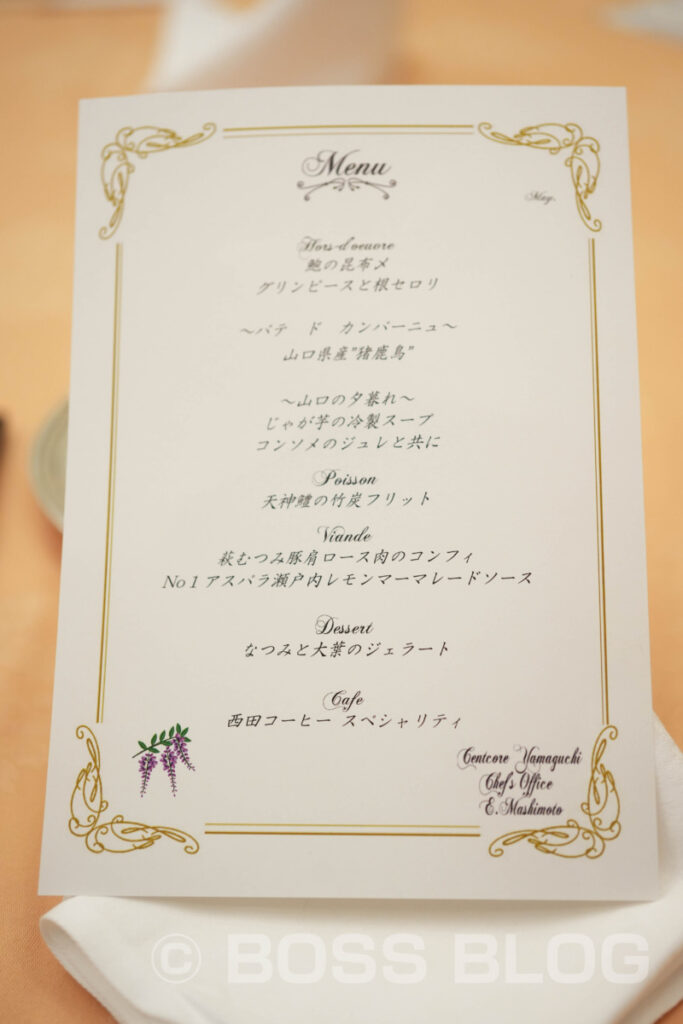 Menu
May.
Hors-d'oeuvre
鮑の昆布〆
グリンピースと根セロリ
～パテ ド カンパーニュ～
山口県産"猪鹿鳥"
～山口の夕暮れ～
じゃが芋の冷製スープ
コンソメのジュレと共に
Poisson
天神鱧の竹炭フリット
Viande
萩むつみ豚肩ロース肉のコンフィ
No1アスパラ瀬戸内レモンマーマレードソース
Dessert
なつみと大葉のジェラート
Cafe
西田コーヒー スペシャリティ
Centcore Yamaguchi
Chef's Office
E.Mashimoto
© BOSS BLOG